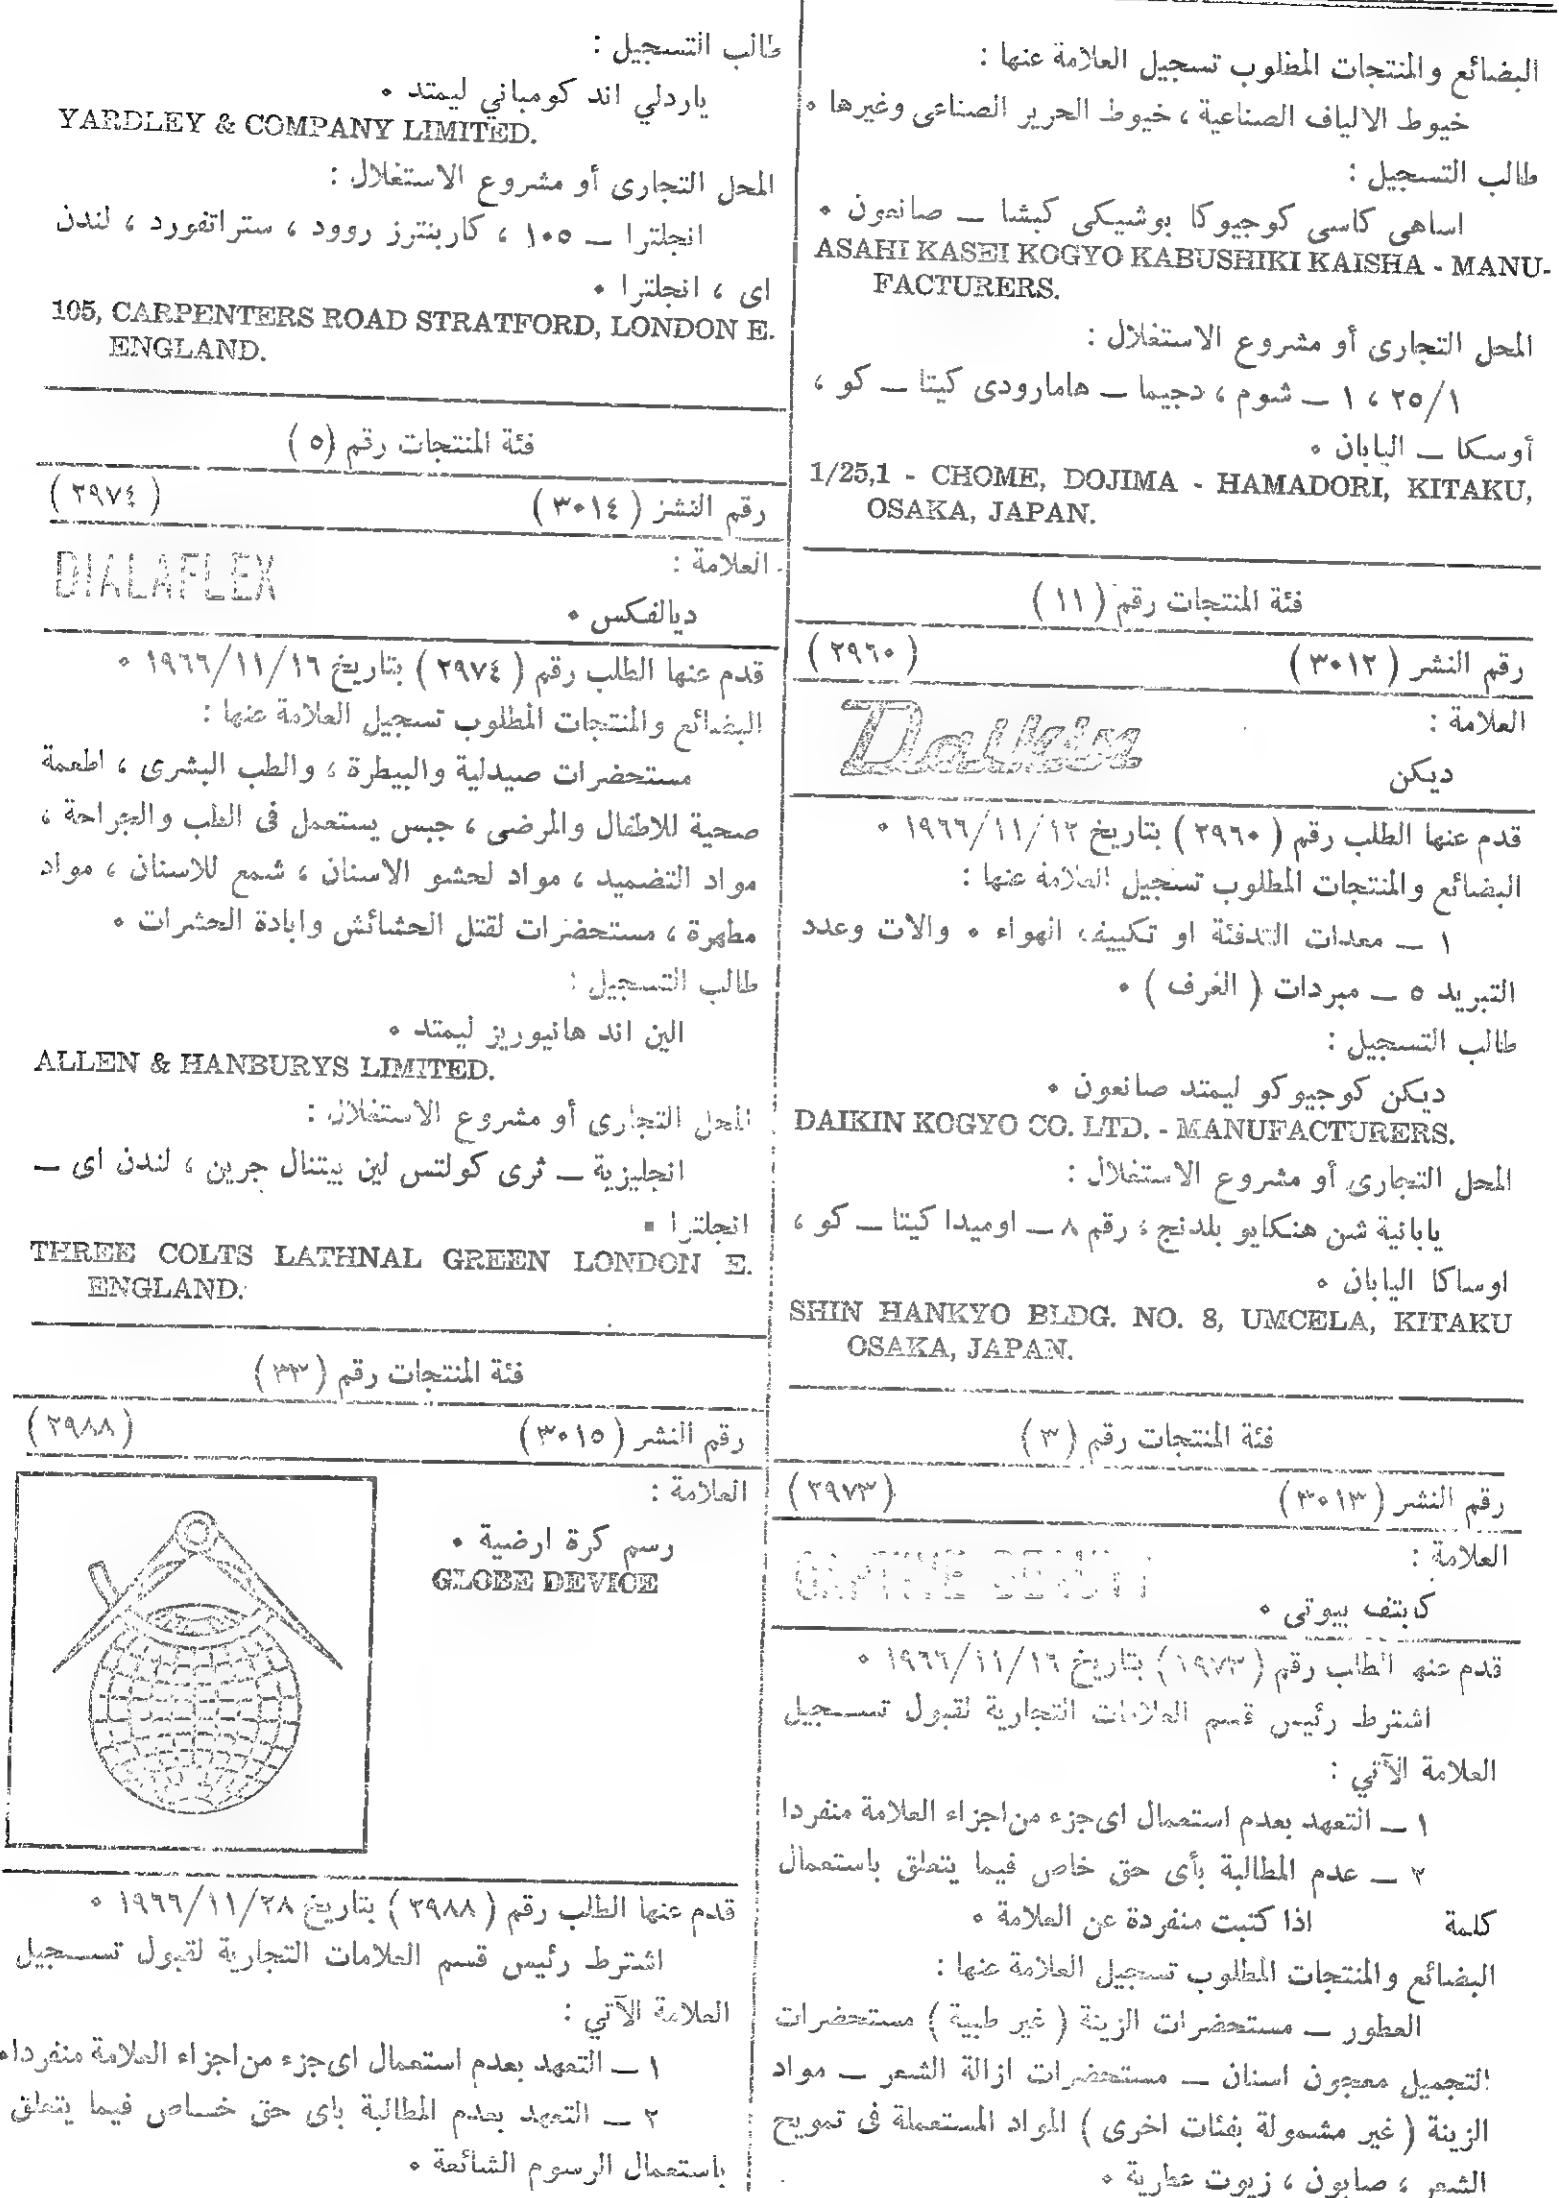 البضائع والمنتجات المطلوب تسجيل العلامة عنها :
خيوط الالياف الصناعية ، خيوط الحرير الصناعى وغيرها ٠
طالب التسجيل :
اساهى كاسى كوجيوكا بوشيكى كيشا ــ صانعون ٠
ASAHI KASEI KOGYO KABUSHIKI KAISHA - MANU-
FACTURERS.
المحل التجارى أو مشروع الاستغلال :
٢٥/١ ، ١ ــ شوم ، دجيما ــ هامارودى كيتا ــ كو ،
أوسكا ــ اليابان ٠
1/25,1 - CHOME, DOJIMA - HAMADORI, KITAKU,
OSAKA, JAPAN.
فئة المنتجات رقم ( ١١ )
رقم النشر ( ٣٠١٢ ) ( ٢٩٦٠ )
العلامة :
Daikin
ديكن
قدم عنها الطلب رقم ( ٢٩٦٠ ) بتاريخ ١٩٦٦/١١/١٢ ٠
البضائع والمنتجات المطلوب تسجيل العلامة عنها :
١ ــ معدات التدفئة او تكييف الهواء ٠ والات وعدد
التبريد ٥ ــ مبردات ( الغرف ) ٠
طالب التسجيل :
ديكن كوجيوكو ليمتد صانعون ٠
DAIKIN KOGYO CO. LTD. - MANUFACTURERS.
المحل التجارى أو مشروع الاستغلال :
يابانية شن هنكايو بلدنج ، رقم ٨ ــ اوميدا كيتا ــ كو ،
اوساكا اليابان ٠
SHIN HANKYO BLDG. NO. 8, UMCELA, KITAKU
OSAKA, JAPAN.
فئة المنتجات رقم ( ٣ )
رقم النشر ( ٣٠١٣ ) ( ٢٩٧٣ )
العلامة :
CAPTIVE BEAUTY
كابتف بيوتى ٠
قدم عنها الطلب رقم ( ١٩٧٣ ) بتاريخ ١٩٦٦/١١/١٦ ٠
اشترط رئيس قسم العلامات التجارية لقبول تسجيل
العلامة الآتي :
١ ــ التعهد بعدم استعمال اى جزء من اجزاء العلامة منفردا
٢ ــ عدم المطالبة بأى حق خاص فيما يتعلق باستعمال
كلمة اذا كتبت منفردة عن العلامة ٠
البضائع والمنتجات المطلوب تسجيل العلامة عنها :
العطور ــ مستحضرات الزينة ( غير طبية ) مستحضرات
التجميل معجون اسنان ــ مستحضرات ازالة الشعر ــ مواد
الزينة ( غير مشمولة بفئات اخرى ) المواد المستعملة فى تمويج
الشعر ، صابون ، زيوت عطرية ٠
طالب التسجيل :
ياردلي اند كومباني ليمتد ٠
YARDLEY & COMPANY LIMITED.
المحل التجارى أو مشروع الاستغلال :
انجلترا ــ ١٠٥ ، كاربنترز روود ، ستراتفورد ، لندن
اى ، انجلترا ٠
105, CARPENTERS ROAD STRATFORD, LONDON E.
ENGLAND.
فئة المنتجات رقم ( ٥ )
رقم النشر ( ٣٠١٤ ) ( ٢٩٧٤ )
العلامة :
DIALAFLEX
ديالفكس ٠
قدم عنها الطلب رقم ( ٢٩٧٤ ) بتاريخ ١٩٦٦/١١/١٦ ٠
البضائع والمنتجات المطلوب تسجيل العلامة عنها :
مستحضرات صيدلية والبيطرة ، والطب البشرى ، اطعمة
صحية للاطفال والمرضى ، جبس يستعمل فى الطب والجراحة ،
مواد التضميد ، مواد لحشو الاسنان ، شمع للاسنان ، مواد
مطهرة ، مستحضرات لقتل الحشائش وابادة الحشرات ٠
طالب التسجيل :
الين اند هانيوريز ليمتد ٠
ALLEN & HANBURYS LIMITED.
المحل التجارى أو مشروع الاستغلال :
انجليزية ــ ثرى كولتس لين بيتنال جرين ، لندن اى ــ
انجلترا ٠
THREE COLTS LATHNAL GREEN LONDON E.
ENGLAND.
فئة المنتجات رقم ( ٣٣ )
رقم النشر ( ٣٠١٥ ) ( ٢٩٨٨ )
العلامة :
رسم كرة ارضية ٠
GLOBE DEVICE
قدم عنها الطلب رقم ( ٢٩٨٨ ) بتاريخ ١٩٦٦/١١/٢٨ ٠
اشترط رئيس قسم العلامات التجارية لقبول تسجيل
العلامة الآتي :
١ ــ التعهد بعدم استعمال اى جزء من اجزاء العلامة منفردا٠
٢ ــ التعهد بعدم المطالبة باى حق خاص فيما يتعلق
باستعمال الرسوم الشائعة ٠